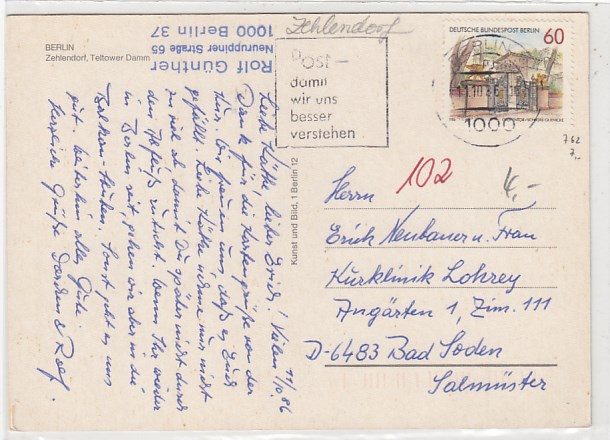 BERLIN
Zehlendorf, Teltower Damm
Rolf Günther
Neuruppiner Straße 65
1000 Berlin 37
Zehlendorf
Post –
damit
wir uns
besser
verstehen
DEUTSCHE BUNDESPOST BERLIN
60
BERLIN
1000
762
7,-
102
4,-
Kunst und Bild, 1 Berlin 12
11/10.86
Liebe Käthe, lieber Erich! Vielen
Dank für die Kartengrüße von der
Kur. Wir freuen uns, daß es Euch
gefällt. Liebe Käthe nehme nur nicht
zu viel ab, damit Du später nicht durch
den Abfluß rutschst. Wenn Ihr wieder
in Berlin seit, gehen wir aber in die
Balkon-Stuben. Sonst geht es uns
gut. Weiterhin alles Gute.
Herzliche Grüße
Rolf.
Herrn
Erich Neubauer u. Frau
Kurklinik Lohrey
Angärten 1, Zim. 111
D-6483 Bad Soden
Salmünster